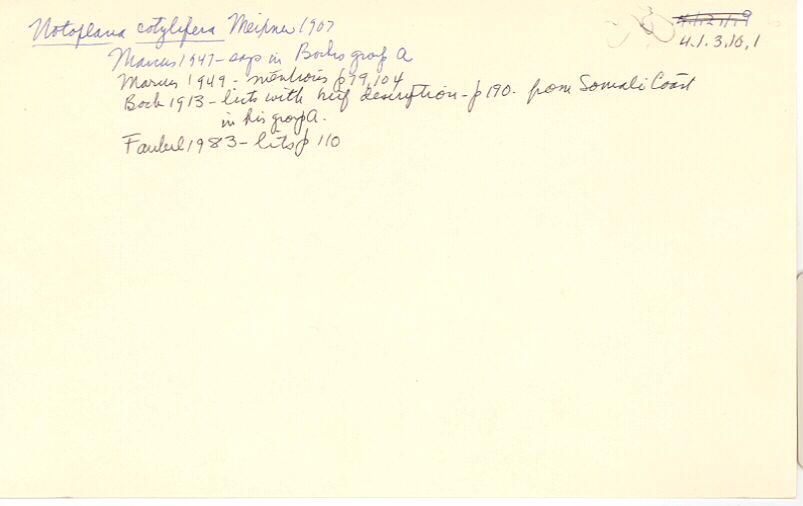 Notoplana cotylifera Meixner 1907
4.1.3.10.1
Marcus 1947 - says in Bocks group A
Marcus 1949 - mentions p 79, 104
Bock 1913 - lists with brief description - p 190. from Somali Coast
in his group A.
Faubel 1983 - lists p 110